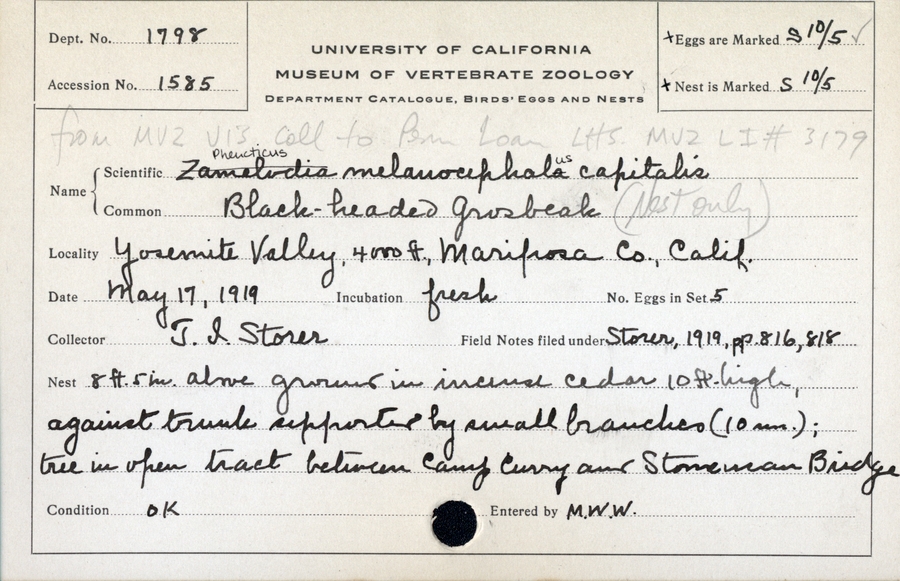 Dept. No. 1798
Accession No. 1585
UNIVERSITY OF CALIFORNIA
MUSEUM OF VERTEBRATE ZOOLOGY
DEPARTMENT CATALOGUE, BIRDS' EGGS AND NESTS
+Eggs are Marked S 10/5 ✓
+Nest is Marked S 10/5
from MVZ V13. Coll to Perm Loan LHS. MVZ LI# 3179
Pheucticus
Name { Scientific Zamelodia melanocephala us capitalis
Common Black-headed Grosbeak (Nest only)
Locality Yosemite Valley, 4000 ft., Mariposa Co., Calif.
Date May 17, 1919 Incubation fresh No. Eggs in Set 5
Collector T. I. Storer Field Notes filed under Storer, 1919, pp. 816, 818
Nest 8 ft. 5 in. above ground in incense cedar 10 ft. high,
against trunk supported by small branches (10 mm.);
tree in open tract between Camp Curry and Stoneman Bridge
Condition OK Entered by M.W.W.